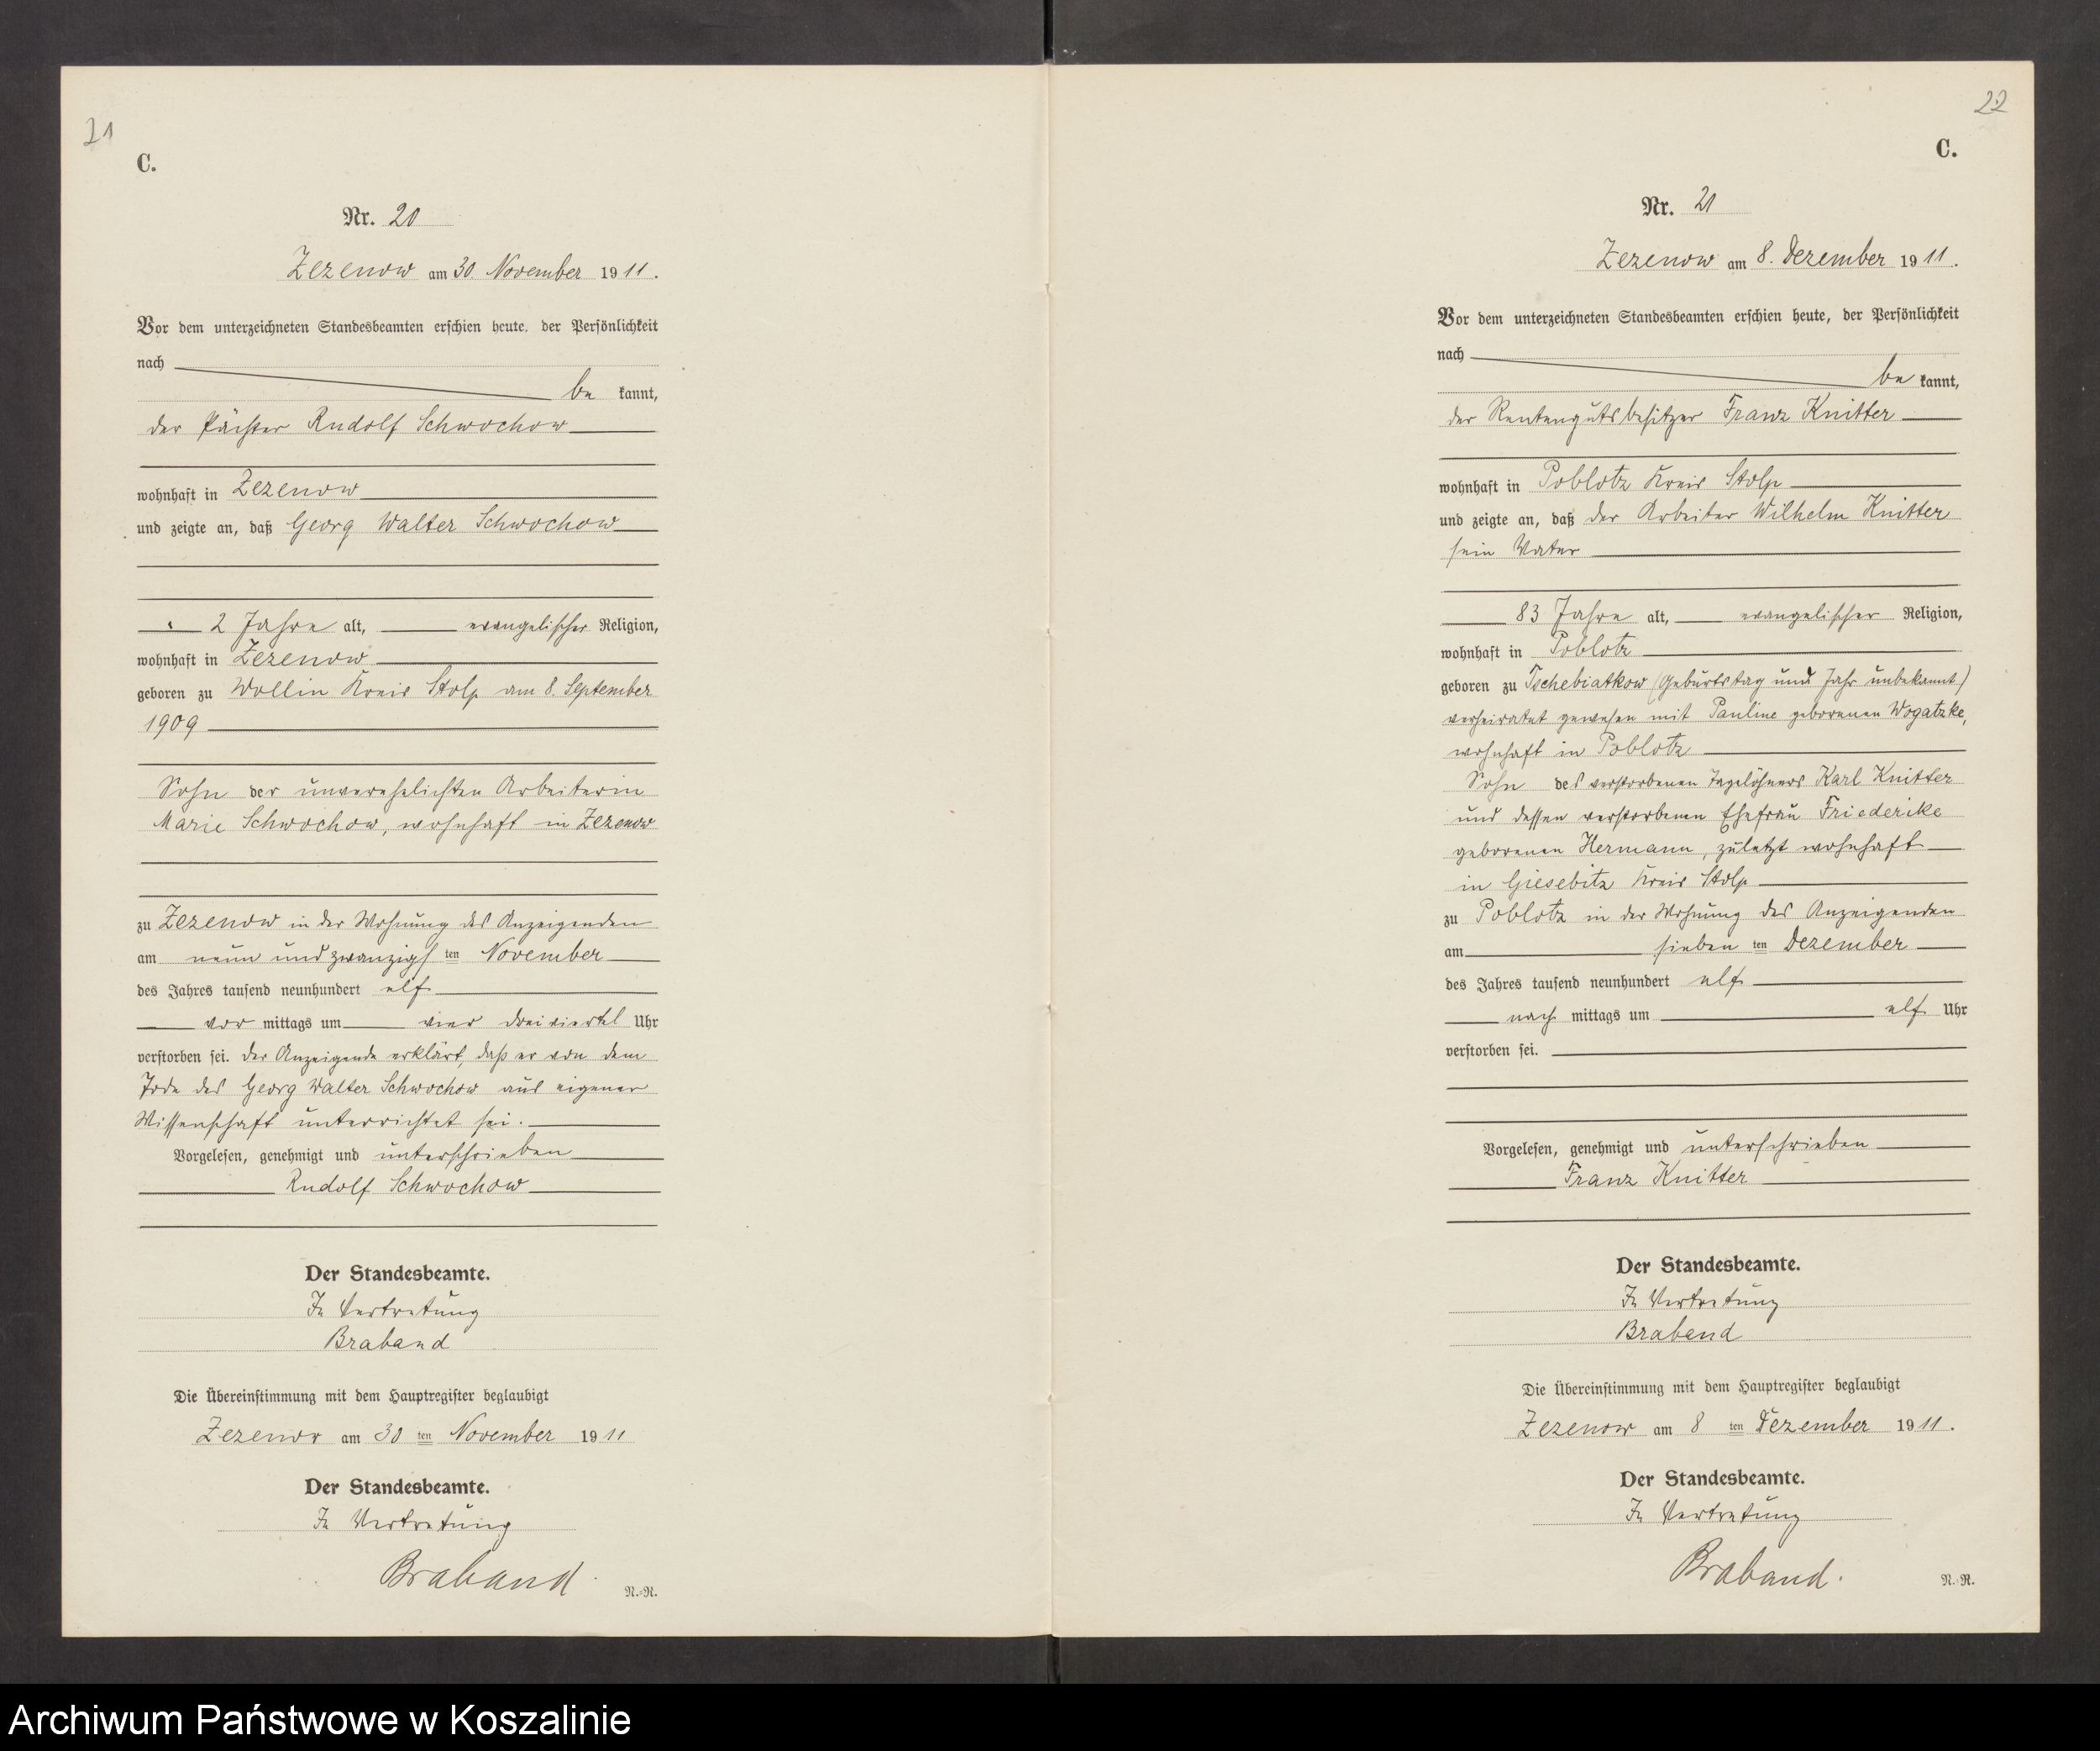 21
C.
Nr. 20
Zezenow am 30. November 1911.
Vor dem unterzeichneten Standesbeamten erschien heute, der Persönlichkeit
nach
be kannt,
der Pächter Rudolf Schwochow
wohnhaft in Zezenow
und zeigte an, daß Georg Walter Schwochow
2 Jahre alt, evangelischer Religion,
wohnhaft in Zezenow
geboren zu Wollin Kreis Stolp am 8. September
1909
Sohn der unverehelichten Arbeiterin
Marie Schwochow, wohnhaft in Zezenow
zu Zezenow in der Wohnung des Anzeigenden
am neun und zwanzigs ten November
des Jahres tausend neunhundert elf
vor mittags um vier dreiviertel Uhr
verstorben sei. Der Anzeigende erklärt, daß er von dem
Tode des Georg Walter Schwochow aus eigener
Wissenschaft unterrichtet sei.
Vorgelesen, genehmigt und unterschrieben
Rudolf Schwochow
Der Standesbeamte.
In Vertretung
Braband
Die Übereinstimmung mit dem Hauptregister beglaubigt
Zezenow am 30 ten November 1911
Der Standesbeamte.
In Vertretung
Braband.
N.-R.
22
C.
Nr. 21
Zezenow am 8. Dezember 1911.
Vor dem unterzeichneten Standesbeamten erschien heute, der Persönlichkeit
nach
be kannt,
der Rentengutsbesitzer Franz Knitter
wohnhaft in Poblotz Kreis Stolp
und zeigte an, daß der Arbeiter Wilhelm Knitter
sein Vater
83 Jahre alt, evangelischer Religion,
wohnhaft in Poblotz
geboren zu Tschebiatkow (Geburtstag und Jahr unbekannt)
verheiratet gewesen mit Pauline geborenen Wogatzke,
wohnhaft in Poblotz
Sohn des verstorbenen Tagelöhners Karl Knitter
und dessen verstorbenen Ehefrau Friederike
geborenen Hermann, zuletzt wohnhaft
in Giesebitz Kreis Stolp
zu Poblotz in der Wohnung des Anzeigenden
am sieben ten Dezember
des Jahres tausend neunhundert elf
nach mittags um elf Uhr
verstorben sei.
Vorgelesen, genehmigt und unterschrieben
Franz Knitter
Der Standesbeamte.
In Vertretung
Braband
Die Übereinstimmung mit dem Hauptregister beglaubigt
Zezenow am 8 ten Dezember 1911.
Der Standesbeamte.
In Vertretung
Braband.
N.-R.
Archiwum Państwowe w Koszalinie